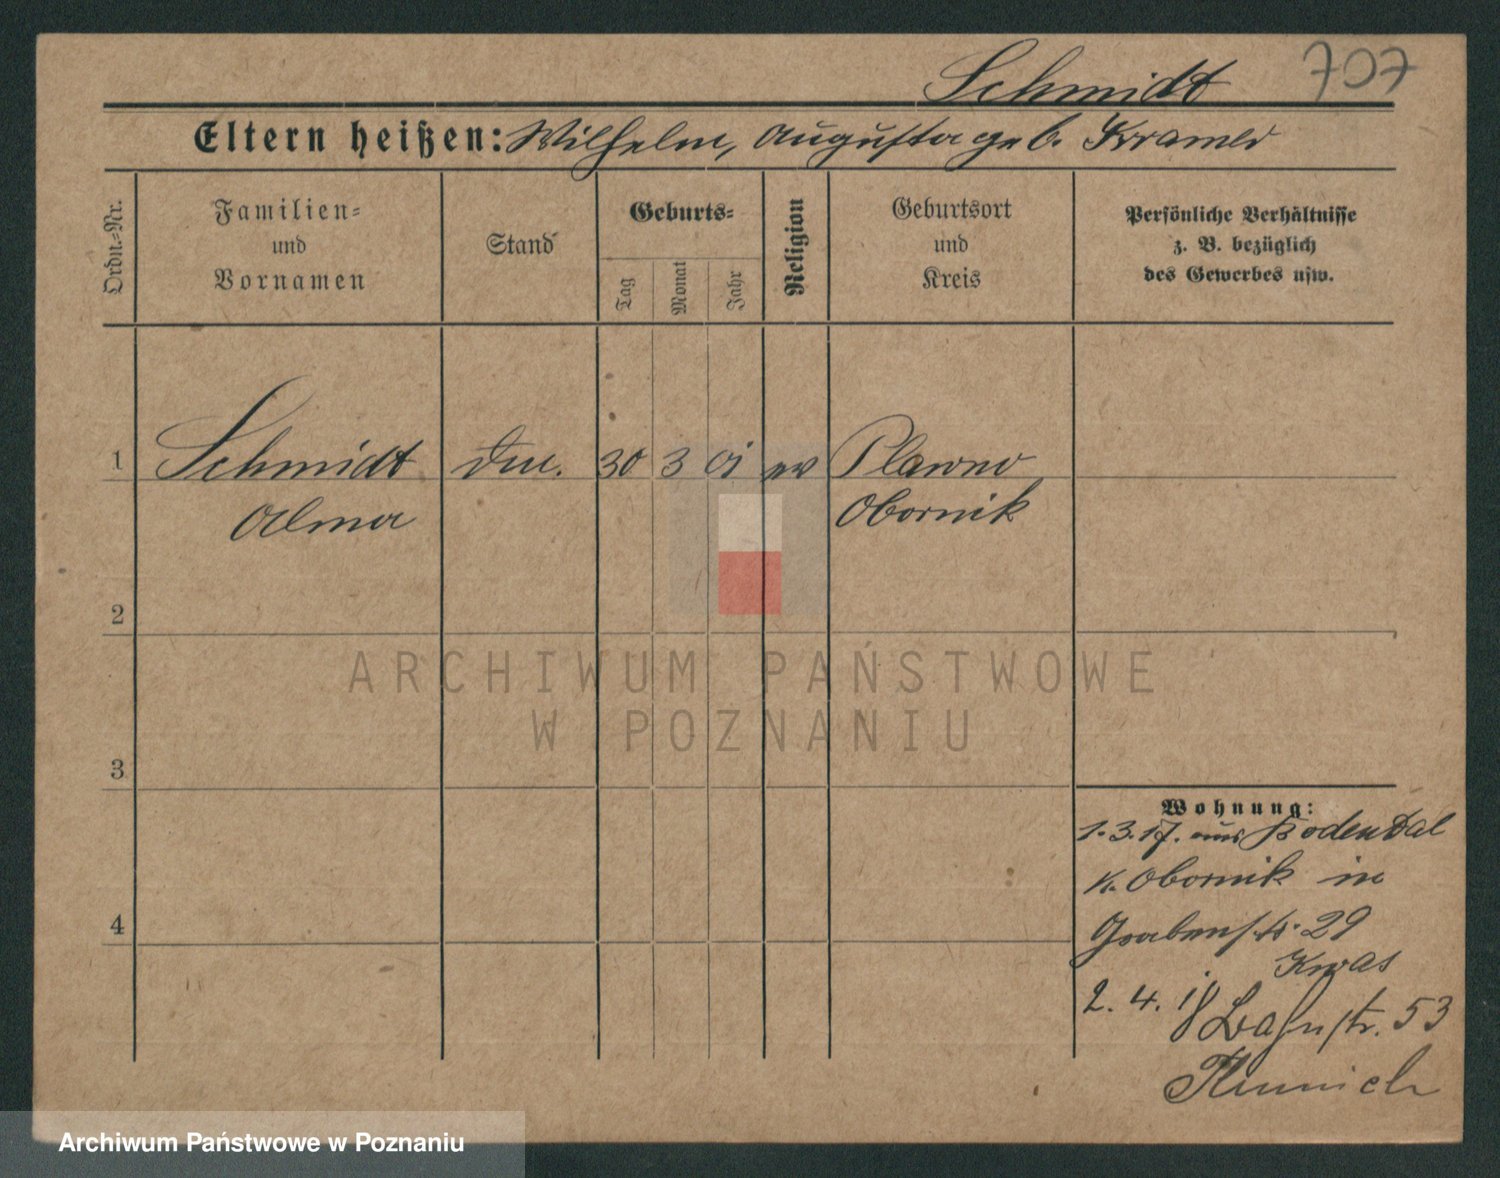 Schmidt 707
Eltern heißen: Wilhelm, Augusta geb. Kramer
Ordn.-Nr.
Familien-
und
Vornamen
Stand
Geburts-
Tag
Monat
Jahr
Religion
Geburtsort
und
Kreis
Persönliche Verhältnisse
z. B. bezüglich
des Gewerbes usw.
1 Schmidt 30 3 01 ev Plawno
Alma Obornik
2
3
4
Wohnung:
1.3.17. aus Bodendal
K. Obornik in
Grabenstr. 29
Kwas
2. 4. 18 Bahnstr. 53
ARCHIWUM PAŃSTWOWE
W POZNANIU
Archiwum Państwowe w Poznaniu